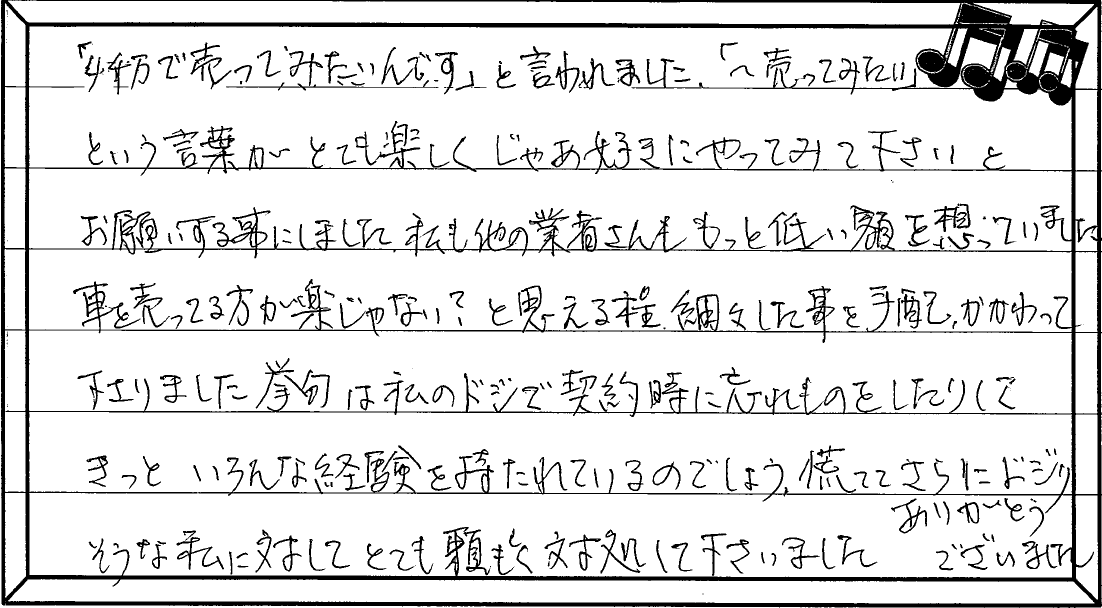 「4千万で売ってみたいんです」と言われました。「〜売ってみたい」
という言葉がとても楽しくじゃあ好きにやってみて下さいと
お願いする事にしました。私も他の業者さんももっと低い額を想っていました
車を売ってる方が楽じゃない?と思える程、細々した事を手配、かかわって
下さりました 挙句は私のドジで契約時に忘れものをしたりして
きっといろんな経験を持たれているのでしょう、慌ててさらにドジり
そうな私に対してとても頼もしく対処して下さいました
ありがとう
ございました